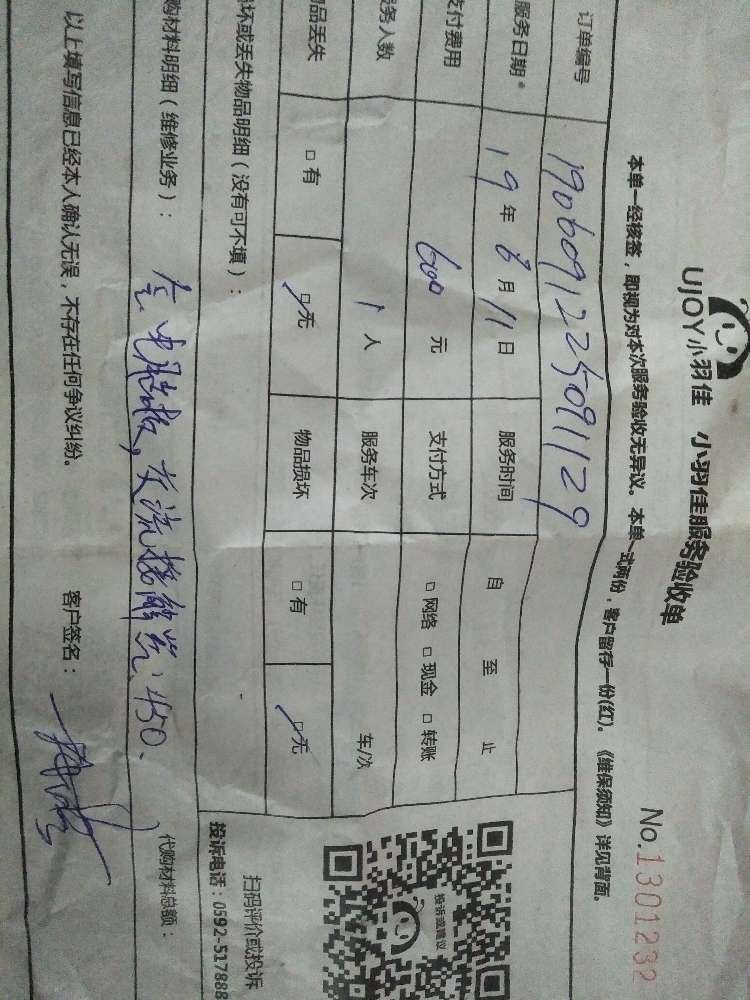 UJOY小羽佳 小羽佳服务验收单
No.1301232
本单一经核签，即视为对本次服务验收无异议。本单一式两份，客户留存一份(红)。《维保须知》详见背面。
订单编号 1906091225091129
服务日期* 19年6月11日 服务时间 自 至 止
支付费用 600元 支付方式 □网络 □现金 □转账
务人数 1人 服务车次 车/次
品丢失 □有 □无 物品损坏 □有 □无
坏或丢失物品明细（没有可不填）：
购材料明细（维修业务）： 电脑板，交流接触器，450、
代购材料总额：
以上填写信息已经本人确认无误，不存在任何争议纠纷。 客户签名：
投诉或建议
扫码评价或投诉
投诉电话：0592-517888